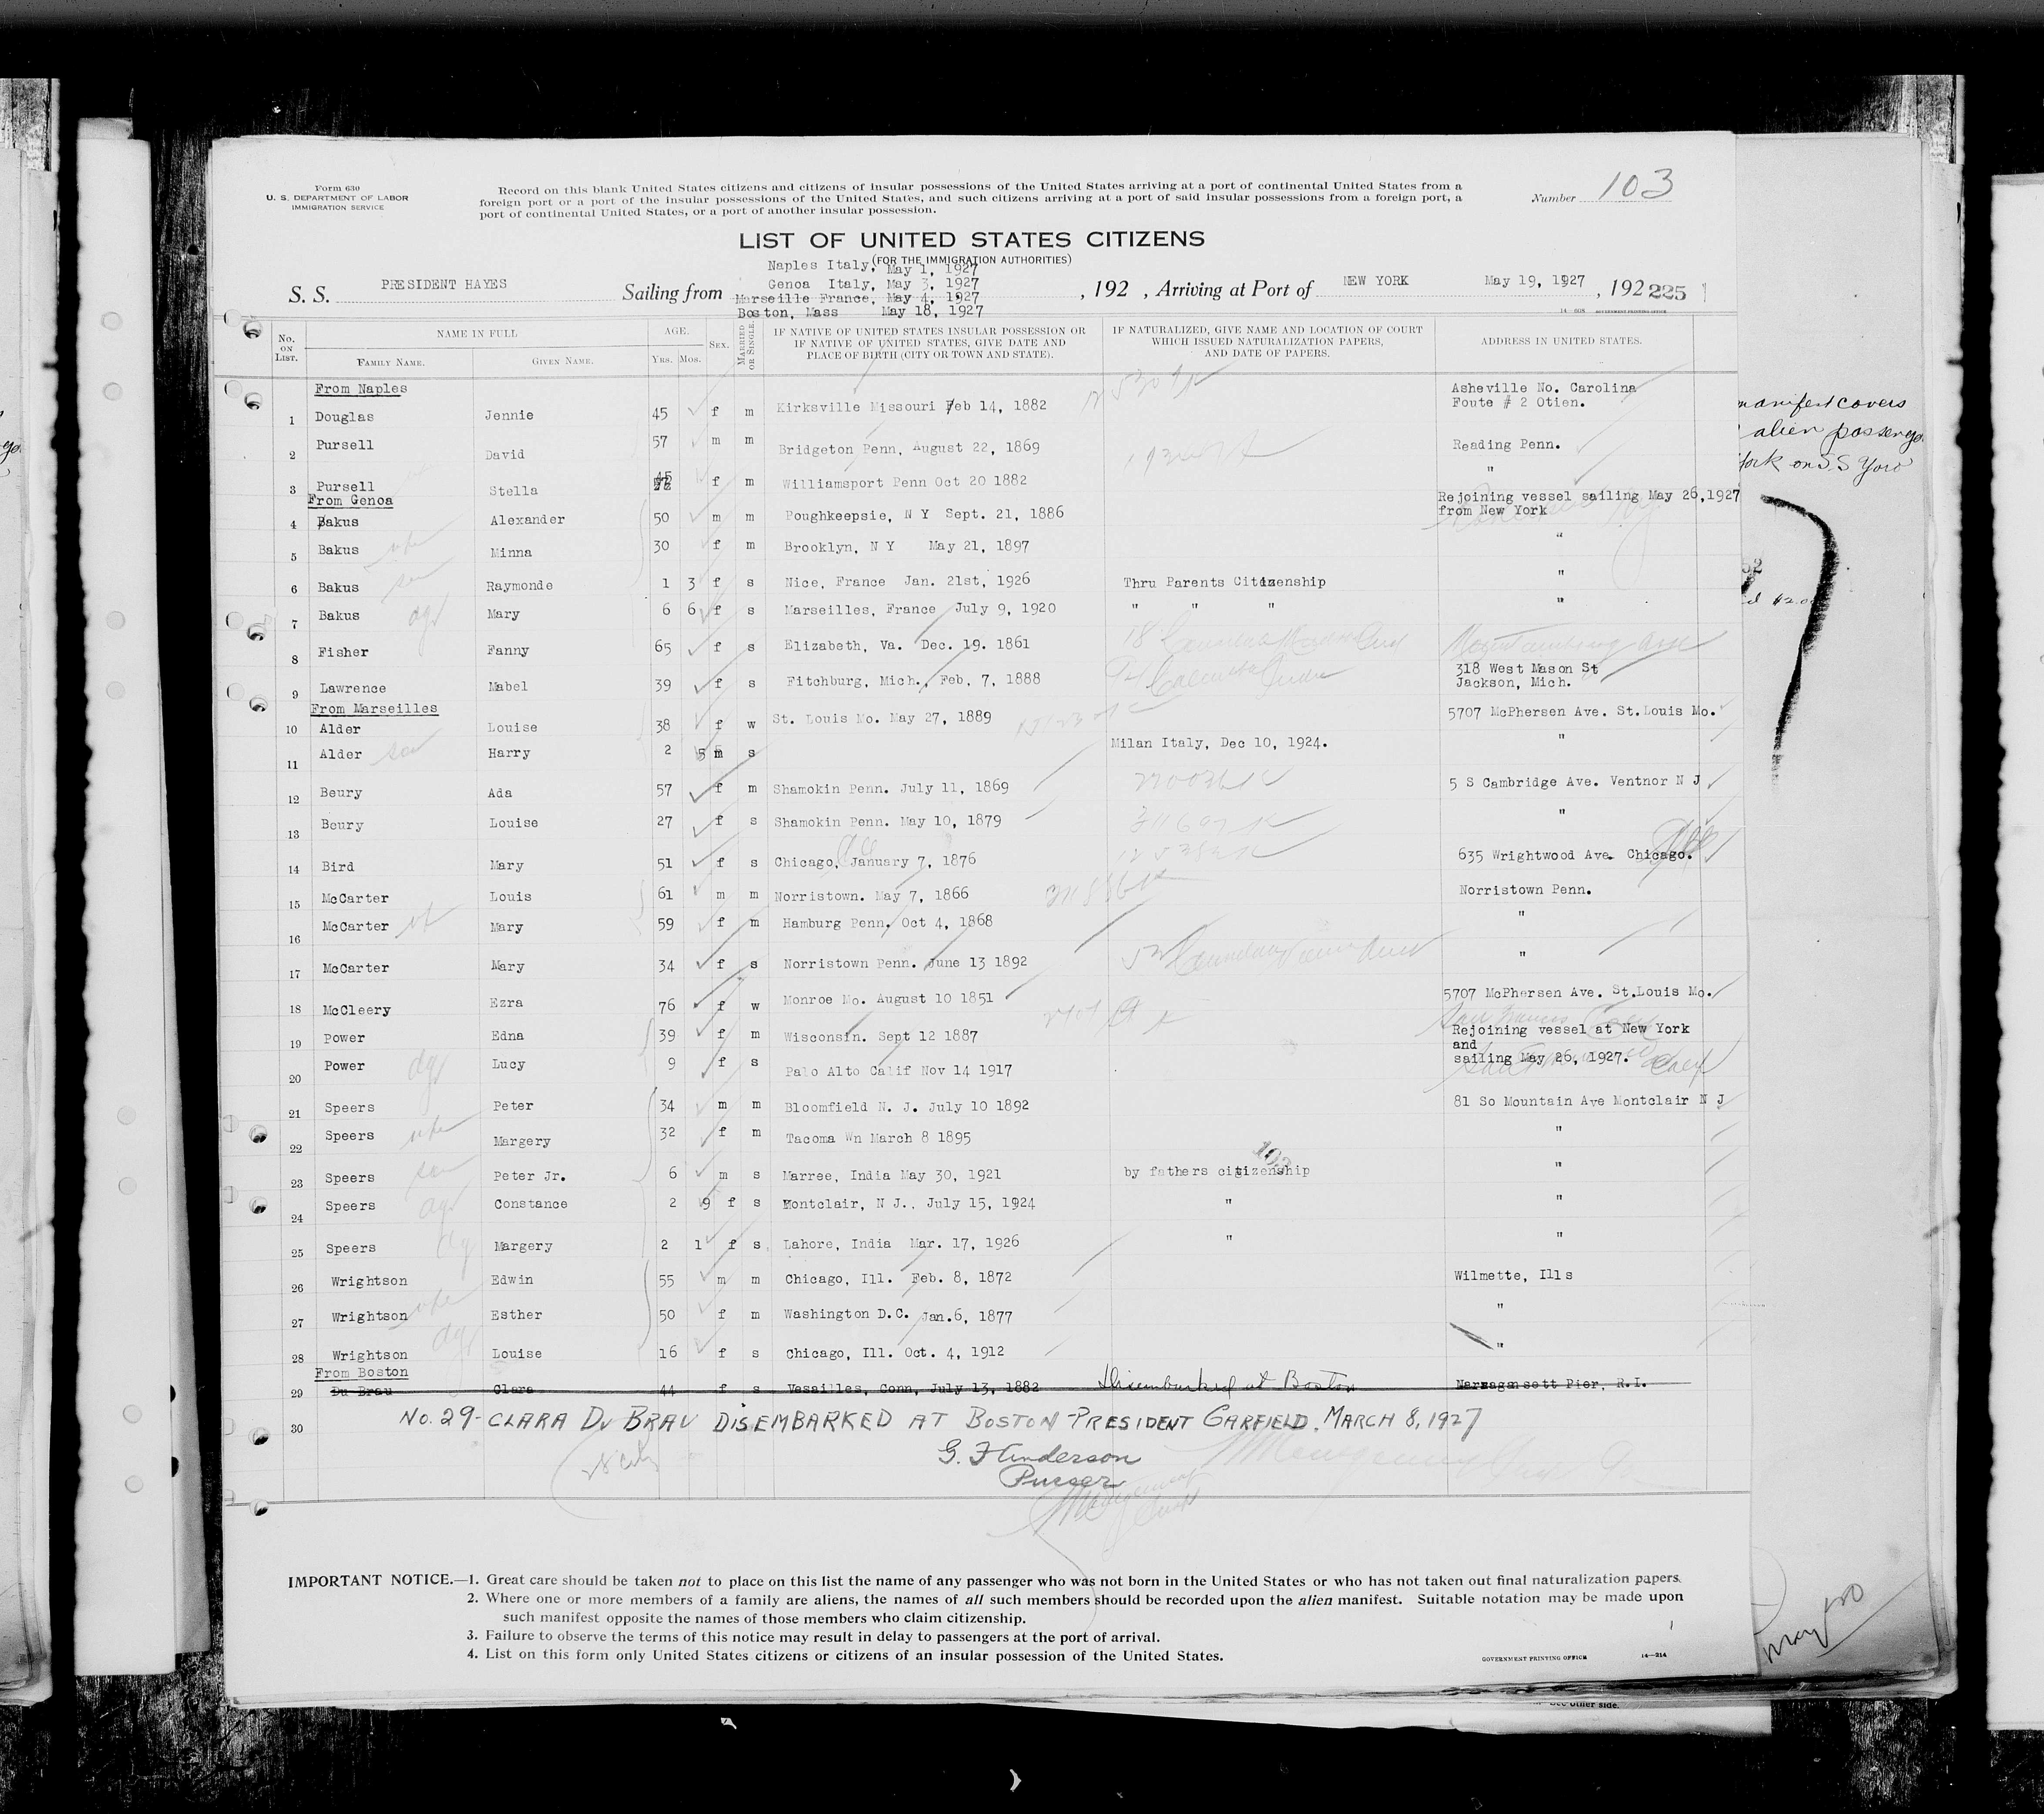 Form 630
U. S. DEPARTMENT OF LABOR
IMMIGRATION SERVICE
Record on this blank United States citizens and citizens of insular possessions of the United States arriving at a port of continental United States from a
foreign port or a port of the insular possessions of the United States, and such citizens arriving at a port of said insular possessions from a foreign port, a
port of continental United States, or a port of another insular possession.
Number 103
LIST OF UNITED STATES CITIZENS
(FOR THE IMMIGRATION AUTHORITIES)
Naples Italy, May 1, 1927
Genoa Italy, May 3, 1927
S. S. PRESIDENT HAYES Sailing from Marseille France, May 4, 1927 , 192 , Arriving at Port of NEW YORK May 19, 1927 , 192 225
Boston, Mass May 18, 1927
14—608 GOVERNMENT PRINTING OFFICE
No. ON LIST. NAME IN FULL AGE. SEX. MARRIED OR SINGLE. IF NATIVE OF UNITED STATES INSULAR POSSESSION OR IF NATIVE OF UNITED STATES, GIVE DATE AND PLACE OF BIRTH (CITY OR TOWN AND STATE). IF NATURALIZED, GIVE NAME AND LOCATION OF COURT WHICH ISSUED NATURALIZATION PAPERS, AND DATE OF PAPERS. ADDRESS IN UNITED STATES.
FAMILY NAME. GIVEN NAME. YRS. MOS.
From Naples
1 Douglas Jennie 45 f m Kirksville Missouri Feb 14, 1882 Asheville No. Carolina Foute # 2 Otien.
2 Pursell David 57 m m Bridgeton Penn, August 22, 1869 Reading Penn.
3 Pursell Stella 45 f m Williamsport Penn Oct 20 1882 "
From Genoa
4 Bakus Alexander 50 m m Poughkeepsie, N Y Sept. 21, 1886 Rejoining vessel sailing May 26,1927 from New York
5 Bakus wife Minna 30 f m Brooklyn, N Y May 21, 1897 "
6 Bakus Raymonde 1 3 f s Nice, France Jan. 21st, 1926 Thru Parents Citizenship "
7 Bakus Mary 6 6 f s Marseilles, France July 9, 1920 " " " "
8 Fisher Fanny 65 f s Elizabeth, Va. Dec. 19. 1861
9 Lawrence Mabel 39 f s Fitchburg, Mich., Feb, 7, 1888 318 West Mason St Jackson, Mich.
From Marseilles
10 Alder Louise 38 f w St. Louis Mo. May 27, 1889 5707 McPhersen Ave. St.Louis Mo.
11 Alder son Harry 2 5 m s Milan Italy, Dec 10, 1924. "
12 Beury Ada 57 f m Shamokin Penn. July 11, 1869 5 S Cambridge Ave. Ventnor N J
13 Beury Louise 27 f s Shamokin Penn. May 10, 1879 "
14 Bird Mary 51 f s Chicago, January 7, 1876 635 Wrightwood Ave. Chicago.
15 McCarter Louis 61 m m Norristown. May 7, 1866 Norristown Penn.
16 McCarter Mary 59 f m Hamburg Penn. Oct 4, 1868 "
17 McCarter Mary 34 f s Norristown Penn. June 13 1892 "
18 McCleery Ezra 76 f w Monroe Mo. August 10 1851 5707 McPhersen Ave. St.Louis Mo.
19 Power Edna 39 f m Wisconsin. Sept 12 1887 Rejoining vessel at New York and
20 Power Lucy 9 f s Palo Alto Calif Nov 14 1917 sailing May 26, 1927.
21 Speers Peter 34 m m Bloomfield N. J. July 10 1892 81 So Mountain Ave Montclair N J
22 Speers wife Margery 32 f m Tacoma Wn March 8 1895 "
103
23 Speers son Peter Jr. 6 m s Marree, India May 30, 1921 by fathers citizenship "
24 Speers Constance 2 9 f s Montclair, N J., July 15, 1924 " "
25 Speers Margery 2 1 f s Lahore, India Mar. 17, 1926 " "
26 Wrightson Edwin 55 m m Chicago, Ill. Feb. 8, 1872 Wilmette, Ills
27 Wrightson wife Esther 50 f m Washington D.C. Jan.6, 1877 "
28 Wrightson Louise 16 f s Chicago, Ill. Oct. 4, 1912 "
From Boston
29 Du Brau Clara 44 f s Vesailles, Conn, July 13, 1882 Disembarked at Boston Narragansett Pier, R.I.
30 No. 29 - CLARA DU BRAU DISEMBARKED AT BOSTON PRESIDENT GARFIELD. MARCH 8, 1927
G. F Anderson
Purser
IMPORTANT NOTICE.—1. Great care should be taken not to place on this list the name of any passenger who was not born in the United States or who has not taken out final naturalization papers.
2. Where one or more members of a family are aliens, the names of all such members should be recorded upon the alien manifest. Suitable notation may be made upon
such manifest opposite the names of those members who claim citizenship.
3. Failure to observe the terms of this notice may result in delay to passengers at the port of arrival.
4. List on this form only United States citizens or citizens of an insular possession of the United States.
GOVERNMENT PRINTING OFFICE 14—214
manifest covers
alien passeng
York on S.S
See other side.